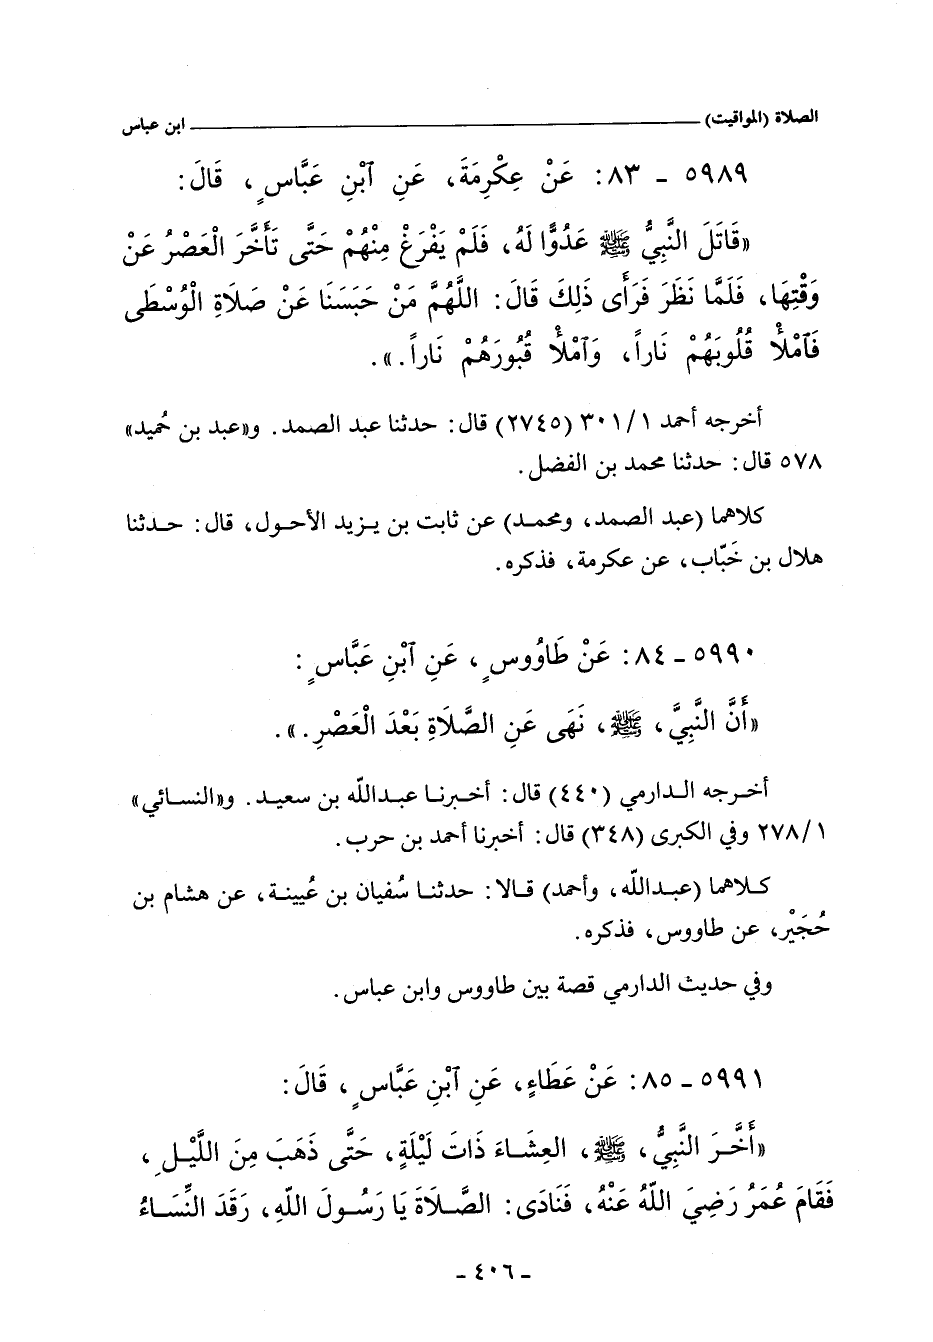 الصلاة (المواقيت) ــــــــــــــــ ابن عباس
٥٩٨٩ ـ ٨٣: عَنْ عِكْرِمَةَ، عَنِ ٱبْنِ عَبَّاسٍ، قَالَ:
«قَاتَلَ النَّبِيُّ ﷺ عَدُوًّا لَهُ، فَلَمْ يَفْرَغْ مِنْهُمْ حَتَّى تَأَخَّرَ الْعَصْرُ عَنْ
وَقْتِهَا، فَلَمَّا نَظَرَ فَرَأَى ذَلِكَ قَالَ: اللَّهُمَّ مَنْ حَبَسَنَا عَنْ صَلَاةِ الْوُسْطَى
فَٱمْلأْ قُلُوبَهُمْ نَاراً، وَٱمْلأْ قُبُورَهُمْ نَاراً.».
أخرجه أحمد ٣٠١/١ (٢٧٤٥) قال: حدثنا عبد الصمد. و«عبد بن حُميد»
٥٧٨ قال: حدثنا محمد بن الفضل.
كلاهما (عبد الصمد، ومحمد) عن ثابت بن يزيد الأحول، قال: حدثنا
هلال بن خَبّاب، عن عكرمة، فذكره.
٥٩٩٠ ـ ٨٤: عَنْ طَاوُوسٍ، عَنِ ٱبْنِ عَبَّاسٍ:
«أَنَّ النَّبِيَّ، ﷺ، نَهَى عَنِ الصَّلَاةِ بَعْدَ الْعَصْرِ.».
أخرجه الدارمي (٤٤٠) قال: أخبرنا عبدالله بن سعيد. و«النسائي»
٢٧٨/١ وفي الكبرى (٣٤٨) قال: أخبرنا أحمد بن حرب.
كلاهما (عبدالله، وأحمد) قالا: حدثنا سُفيان بن عُيينة، عن هشام بن
حُجَيْر، عن طاووس، فذكره.
وفي حديث الدارمي قصة بين طاووس وابن عباس.
٥٩٩١ ـ ٨٥: عَنْ عَطَاءٍ، عَنِ ٱبْنِ عَبَّاسٍ، قَالَ:
«أَخَّرَ النَّبِيُّ، ﷺ، العِشَاءَ ذَاتَ لَيْلَةٍ، حَتَّى ذَهَبَ مِنَ اللَّيْلِ،
فَقَامَ عُمَرُ رَضِيَ اللَّهُ عَنْهُ، فَنَادَى: الصَّلَاةَ يَا رَسُولَ اللهِ، رَقَدَ النِّسَاءُ
ـ ٤٠٦ ـ